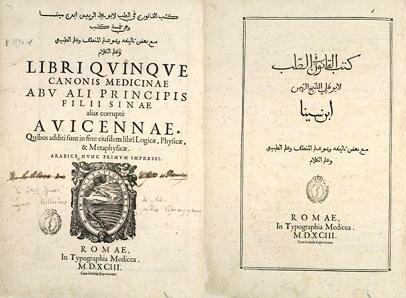 كتب القانون في الطب لابو علي الشيخ الرئيس ابن سينا
مع بعض تاليفه وهو علم المنطق وعلم الطبيعي
وعلم الكلام
LIBRI QVINQVE
CANONIS MEDICINAE
ABV ALI PRINCIPIS
FILII SINAE
alias corruptè
AVICENNAE.
Quibus additi sunt in fine eiusdem libri Logicæ, Physicæ,
& Metaphysicæ.
ARABICE NVNC PRIMVM IMPRESSI.
ROMAE,
In Typographia Medicea.
M.D.XCIII.
Cum licentia Superiorum.
كتب القانون في الطب
لابو علي الشيخ الرئيس
ابن سينا
مع بعض تاليفه وهو علم المنطق وعلم الطبيعي
وعلم الكلام
ROMAE,
In Typographia Medicea.
M.D.XCIII.
Cum licentia Superiorum.